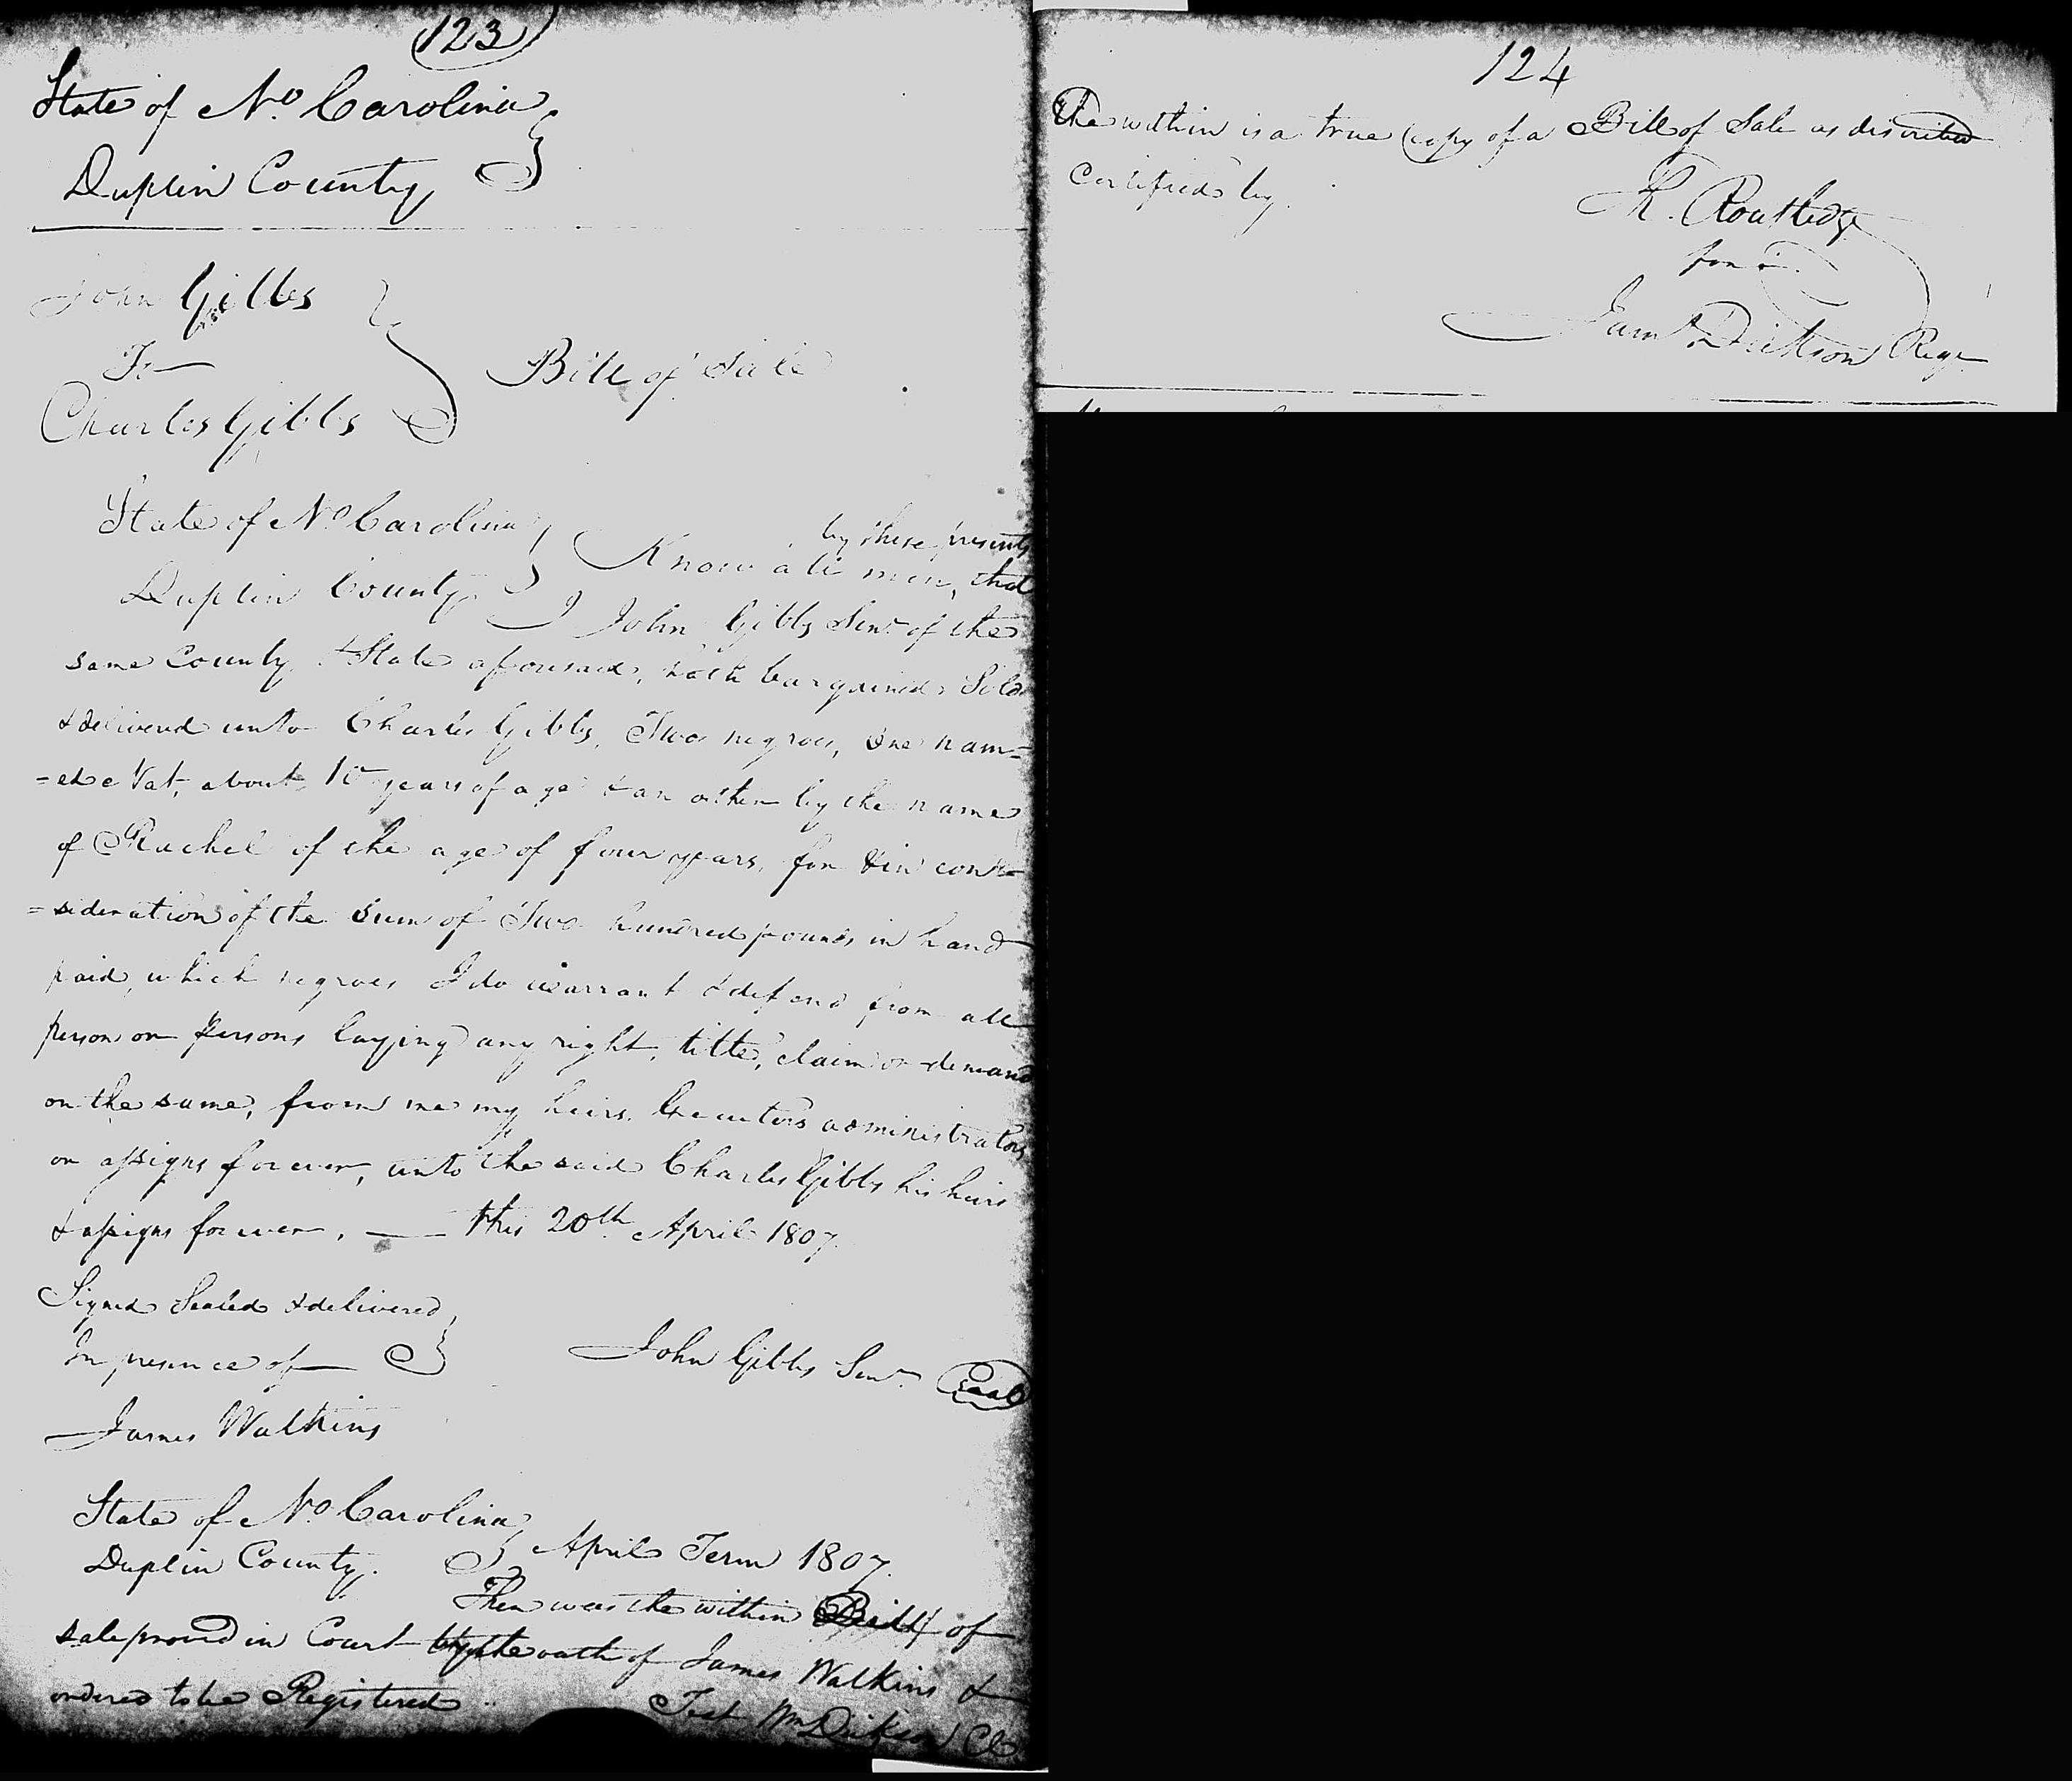 123
State of No Carolina
Duplin County
John Gibbs
To
Charles Gibbs
Bill of Sale
State of No Carolina
Duplin County
by these presents
Know all men, that
I John Gibbs Senr of the
same County & State aforesaid, hath bargained, Sold
& delivered unto Charles Gibbs, Two negroes, One nam=
=ed Vat, about 10 years of age & an other by the name
of Rachel of the age of four years, for & in con=
=sideration of the sum of Two hundred pounds in hand
paid, which negroes I do warrant & defend from all
person or persons laying any right, title, claim or demand
on the same, from me my heirs, Executors administrators
or assigns forever, unto the said Charles Gibbs his heirs
& assigns forever. — this 20th April 1807.
Signed Sealed & delivered
In presence of
John Gibbs Senr Seal
James Watkins
State of No Carolina
Duplin County.
April Term 1807.
Then was the within Bill of
sale proved in Court by the oath of James Watkins &
ordered to be Registered
Test Wm Dickson Cl
124
The within is a true Copy of a Bill of Sale as discribed
Certified by
Th. Routledge
for
Jams Dickson Regr